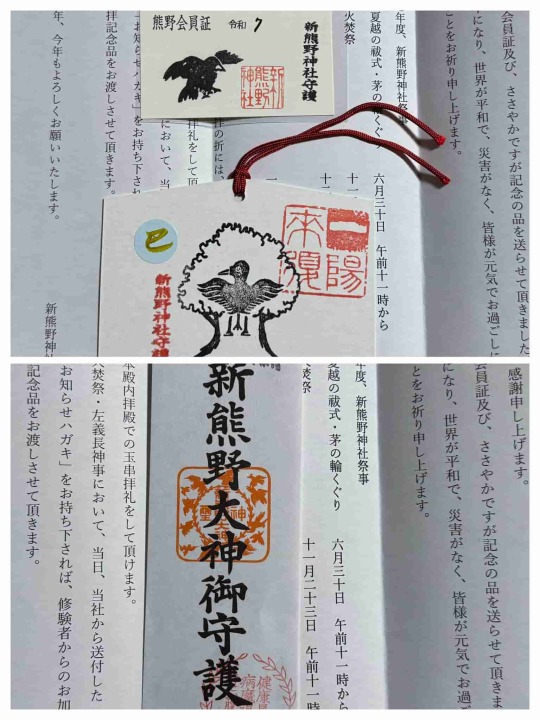 会員証及び、ささやかですが記念の品を送らせて頂きました
になり、世界が平和で、災害がなく、皆様が元気でお過ごしに
ことをお祈り申し上げます。
年度、新熊野神社祭事
夏越の祓式・茅の輪くぐ
六月三十日 午前十一時から
火焚祭
熊野会員証 令和7
新熊野神社守護
新
熊野
神社
お知らせハガキ」をお持ち下され
拝記念品をお渡しさせて頂きます。
年、今年もよろしくお願いいたします。
新熊野神社
巳
一陽来復
新熊野神社守護
感謝申し上げます。
会員証及び、ささやかですが記念の品を送らせて頂きま
になり、世界が平和で、災害がなく、皆様が元気でお過ご
ことをお祈り申し上げます。
年度、新熊野神社祭事
夏越の祓式・茅の輪くぐり 六月三十日 午前十一時から
火焚祭 十一月二十三日 午前十一時
新熊野大神御守護
健康長
病
本殿内拝殿での玉串拝礼をして頂けます。
火焚祭・左義長神事において、当日、当社から送付した
お知らせハガキ」をお持ち下されば、修験者からのお加
記念品をお渡しさせて頂きます。